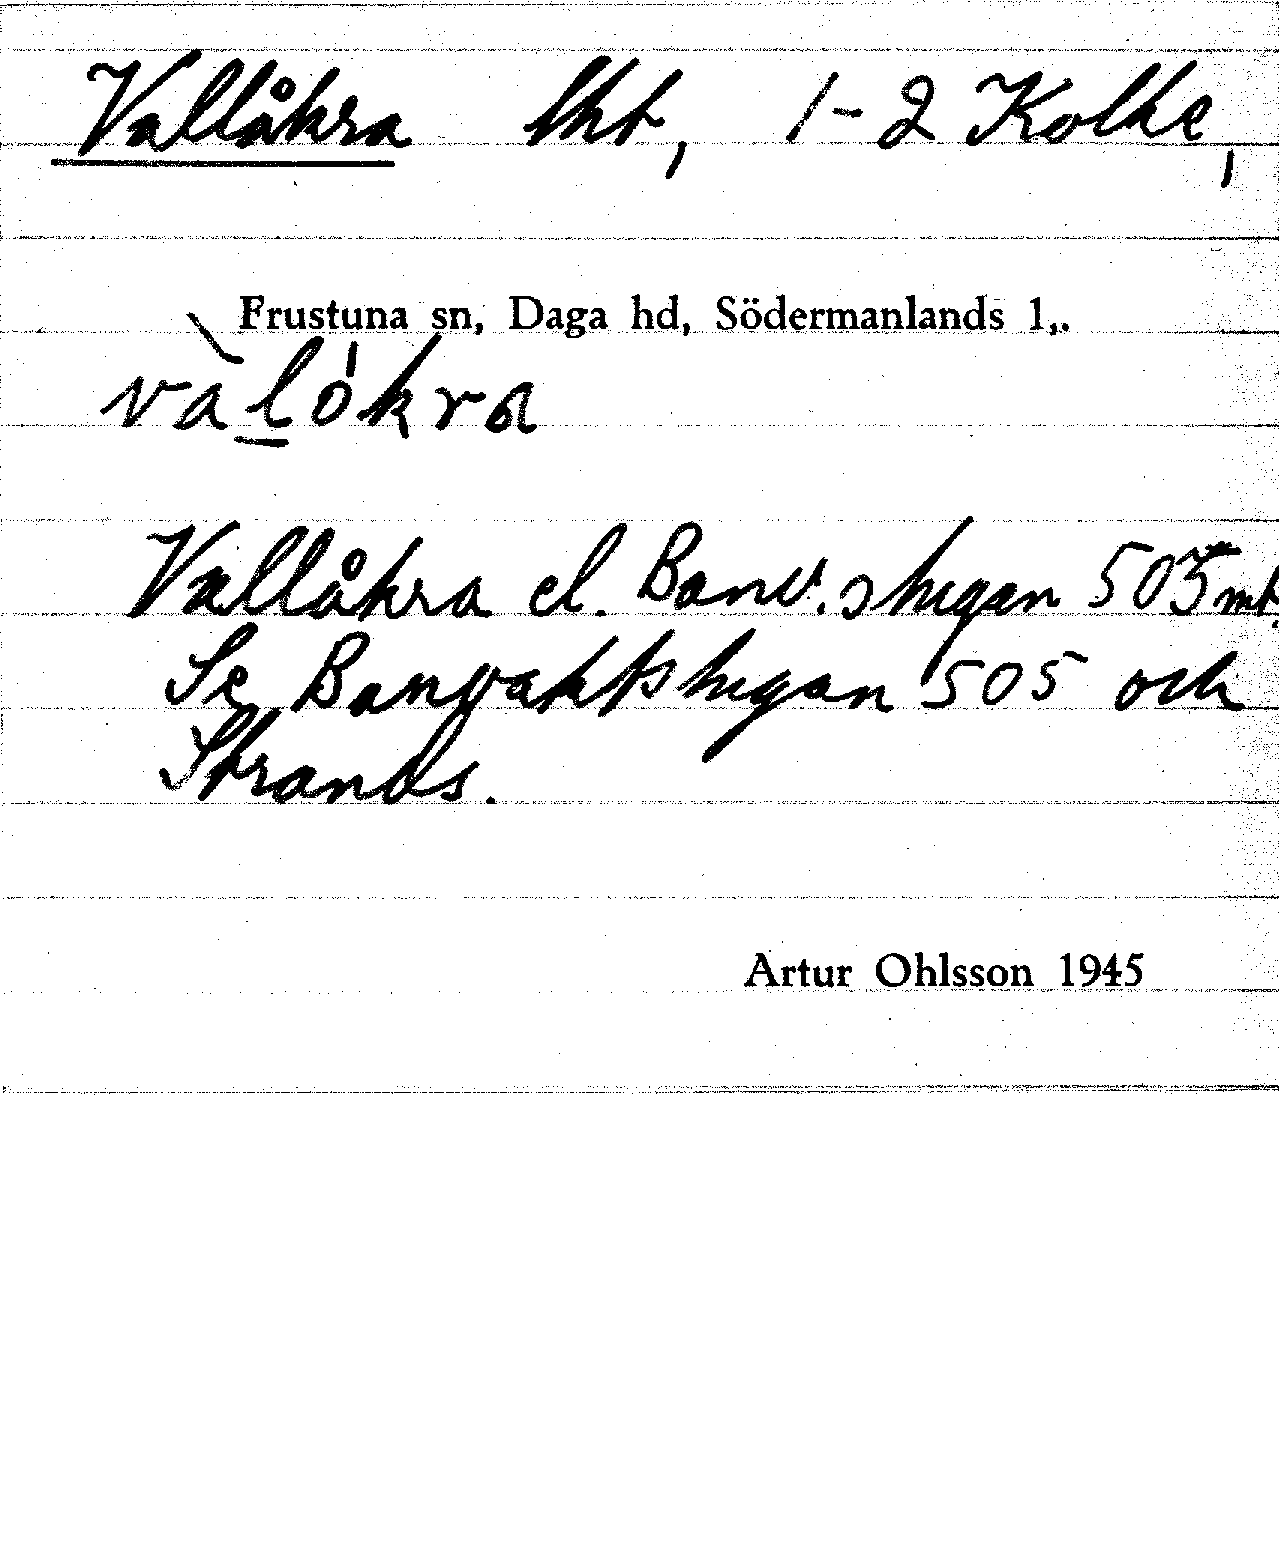 Vallåkra lht, 1-2 Kolke,
Frustuna sn, Daga hd, Södermanlands l.
vàl̲ókra
Vallåkra el. Banv.stugan 505 mt.
Se Banvaktstugan 505 och
Strands.
Artur Ohlsson 1945